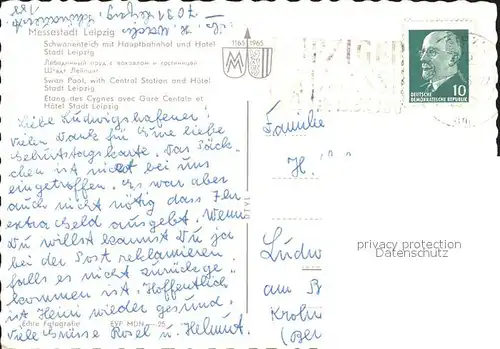 7031 Leipzig
Messestadt Leipzig
Schwanenteich mit Hauptbahnhof und Hotel
Stadt Leipzig
Лебединный пруд с вокзалом и гостиницей
Штадт Лейпциг
Swan Pool, with Central Station and Hotel
Stadt Leipzig
Etang des Cygnes avec Gare Centale et
Hôtel Stadt Leipzig
1165 1965
Liebe Ludwigshafener!
Vielen Dank für Eure liebe
Geburtstagskarte. Das Päck-
chen ist nicht bei uns
eingetroffen. Es war aber
auch nicht nötig dass Ihr
extra Geld ausgebt. Wenn
Du willst kannst Du ja
bei der Post reklamieren
falls es nicht zurückge-
kommen ist. Hoffentlich
ist Heini wieder gesund.
Viele Grüsse Rosel u. Helmut.
Echte Fotografie EVP MDN -.25
10
DEUTSCHE
DEMOKRATISCHE REPUBLIK
Familie
H.
Ludw
am
(Ber
privacy protection
Datenschutz